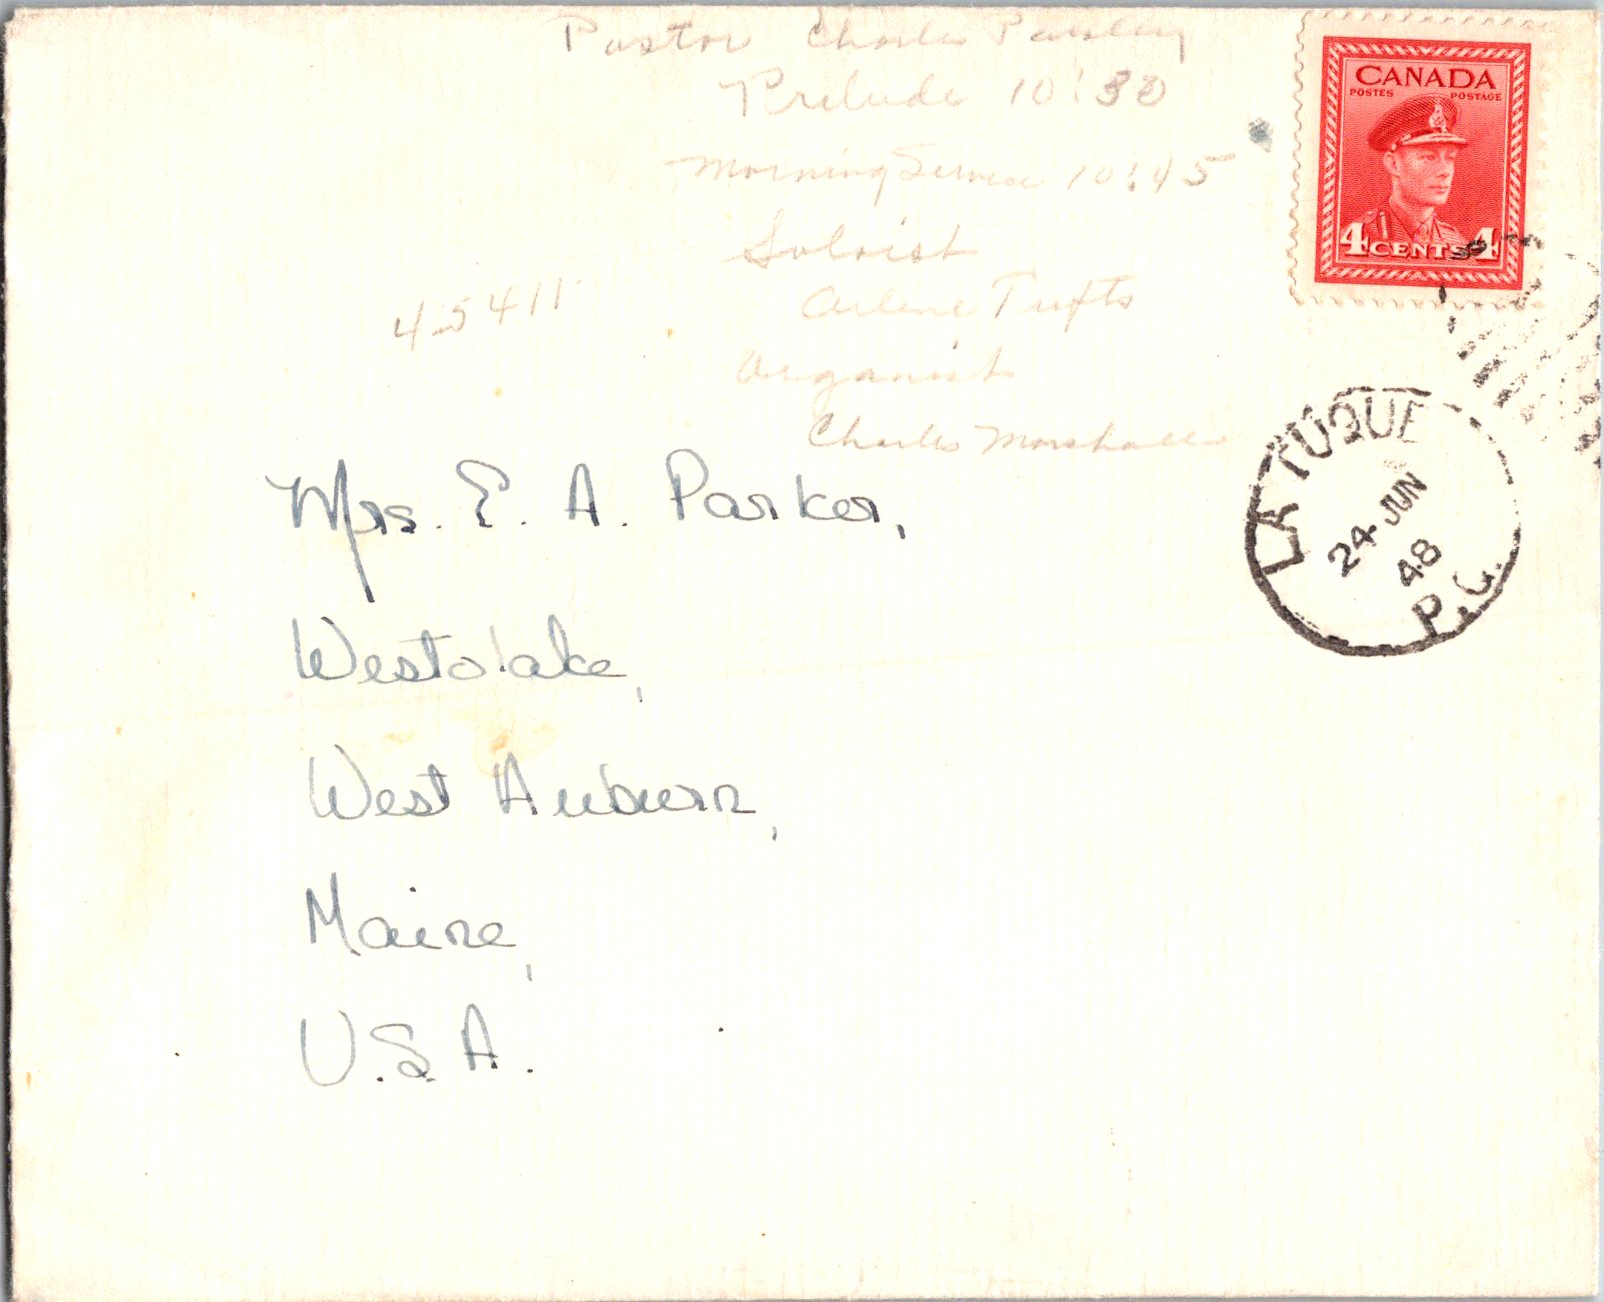 Pastor Charles Paisley
Prelude 10:30
Morning Service 10:45
Soloist
Arlene Tufts
Organist
Charles Marshall
45411
CANADA
POSTES POSTAGE
4 CENTS 4
LA TUQUE
24 JUN
48
P.Q.
Mrs. E. A. Parker,
Westolake,
West Auburn,
Maine,
U.S.A.